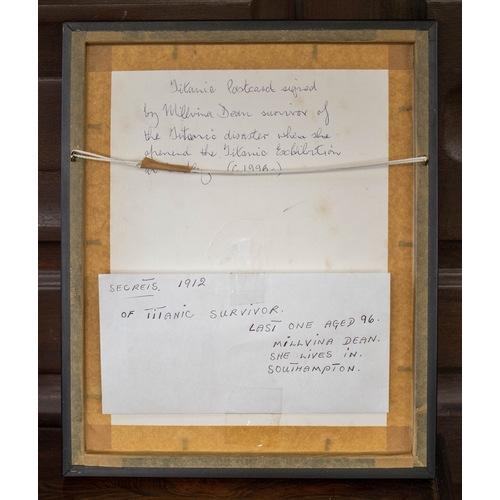 Titanic Postcard signed
by Millvina Dean survivor of
the Titanic disaster when she
opened the Titanic Exhibition
(c 1998)
SECRETS 1912
OF TITANIC SURVIVOR.
LAST ONE AGED 96.
MILLVINA DEAN.
SHE LIVES IN.
SOUTHAMPTON.